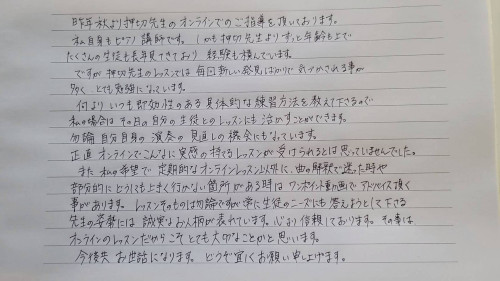 昨年秋より押切先生のオンラインでのご指導を頂いております。
私自身もピアノ講師です。しかも押切先生よりずっと年齢も上で
たくさんの生徒も長年見てきており 経験も積んでいます。
ですが押切先生のレッスンでは毎回新しい発見ばかりで気づかされる事が
多く とても勉強になっています。
何より いつも即効性のある具体的な練習方法を教えて下さるので
私の場合はその日の自分の生徒とのレッスンにも活かすことができます。
勿論 自分自身の演奏の見直しの機会にもなっています。
正直 オンラインでこんなに実感の持てるレッスンが受けられるとは思っていませんでした。
また 私の希望で定期的なオンラインレッスン以外に、曲の解釈で迷った時や
部分的にどうしても上手く行かない箇所がある時はワンポイント動画でアドバイス頂く
事があります。レッスンそのものは勿論ですが常に生徒のニーズにも答えようとして下さる
先生の姿勢には 誠実なお人柄が表れています。心より信頼しております。その事は
オンラインのレッスンだからこそ とても大切なことかと思います。
今後共 お世話になります。どうぞ宜しくお願い申し上げます。